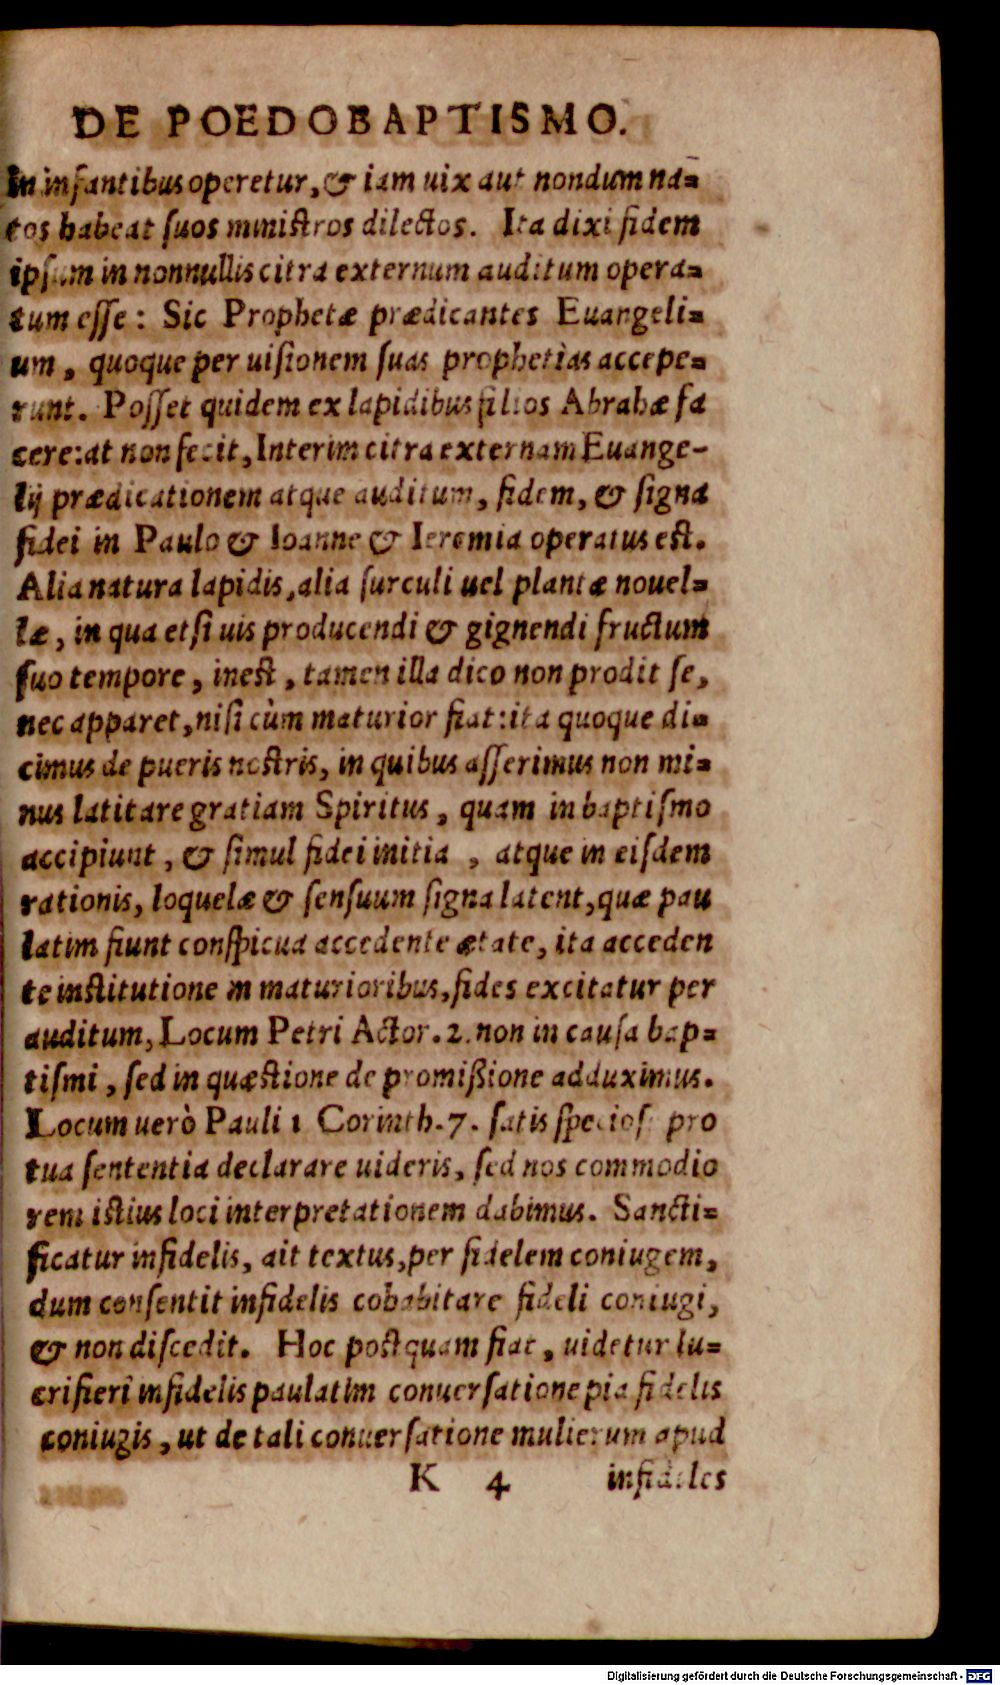 DE POEDOBAPTISMO.
In infantibus operetur, & iam uix aut nondum na=
tos habeat ſuos miniſtros dilectos. Ita dixi fidem
ipſam in nonnullis citra externum auditum opera=
tum eſſe: Sic Prophetæ prædicantes Euangeli=
um, quoque per uiſionem ſuas prophetìas accepe=
runt. Poſſet quidem ex lapidibus filios Abrahæ fa
cere: at non fecit, Interim citra externam Euange-
lij prædicationem atque auditum, fidem, & ſigna
fidei in Paulo & Ioanne & Ieremia operatus eſt.
Alia natura lapidis, alia ſurculi uel plantæ nouel=
læ, in qua etſi uis producendi & gignendi fructum
ſuo tempore, ineſt, tamen illa dico non prodit ſe,
nec apparet, niſi cùm maturior fiat: ita quoque di=
cimus de pueris noſtris, in quibus aſſerimus non mi=
nus latitare gratiam Spiritus, quam in baptiſmo
accipiunt, & ſimul fidei initia, atque in eiſdem
rationis, loquelæ & ſenſuum ſigna latent, quæ pau
latim fiunt conſpicua accedente ætate, ita acceden
te inſtitutione in maturioribus, fides excitatur per
auditum, Locum Petri Actor. 2. non in cauſa bap=
tiſmi, ſed in quæſtione de promißione adduximus.
Locum uerò Pauli 1 Corinth. 7. ſatis ſpecioſe pro
tua ſententia declarare uideris, ſed nos commodio
rem iſtius loci interpretationem dabimus. Sancti=
ficatur infidelis, ait textus, per fidelem coniugem,
dum conſentit infidelis cohabitare fideli coniugi,
& non diſcedit. Hoc poſtquam fiat, uidetur lu=
crifieri infidelis paulatim conuerſatione pia fidelis
coniugis, ut de tali conuerſatione mulierum apud
K 4 infideles
Digitalisierung gefördert durch die Deutsche Forschungsgemeinschaft - DFG